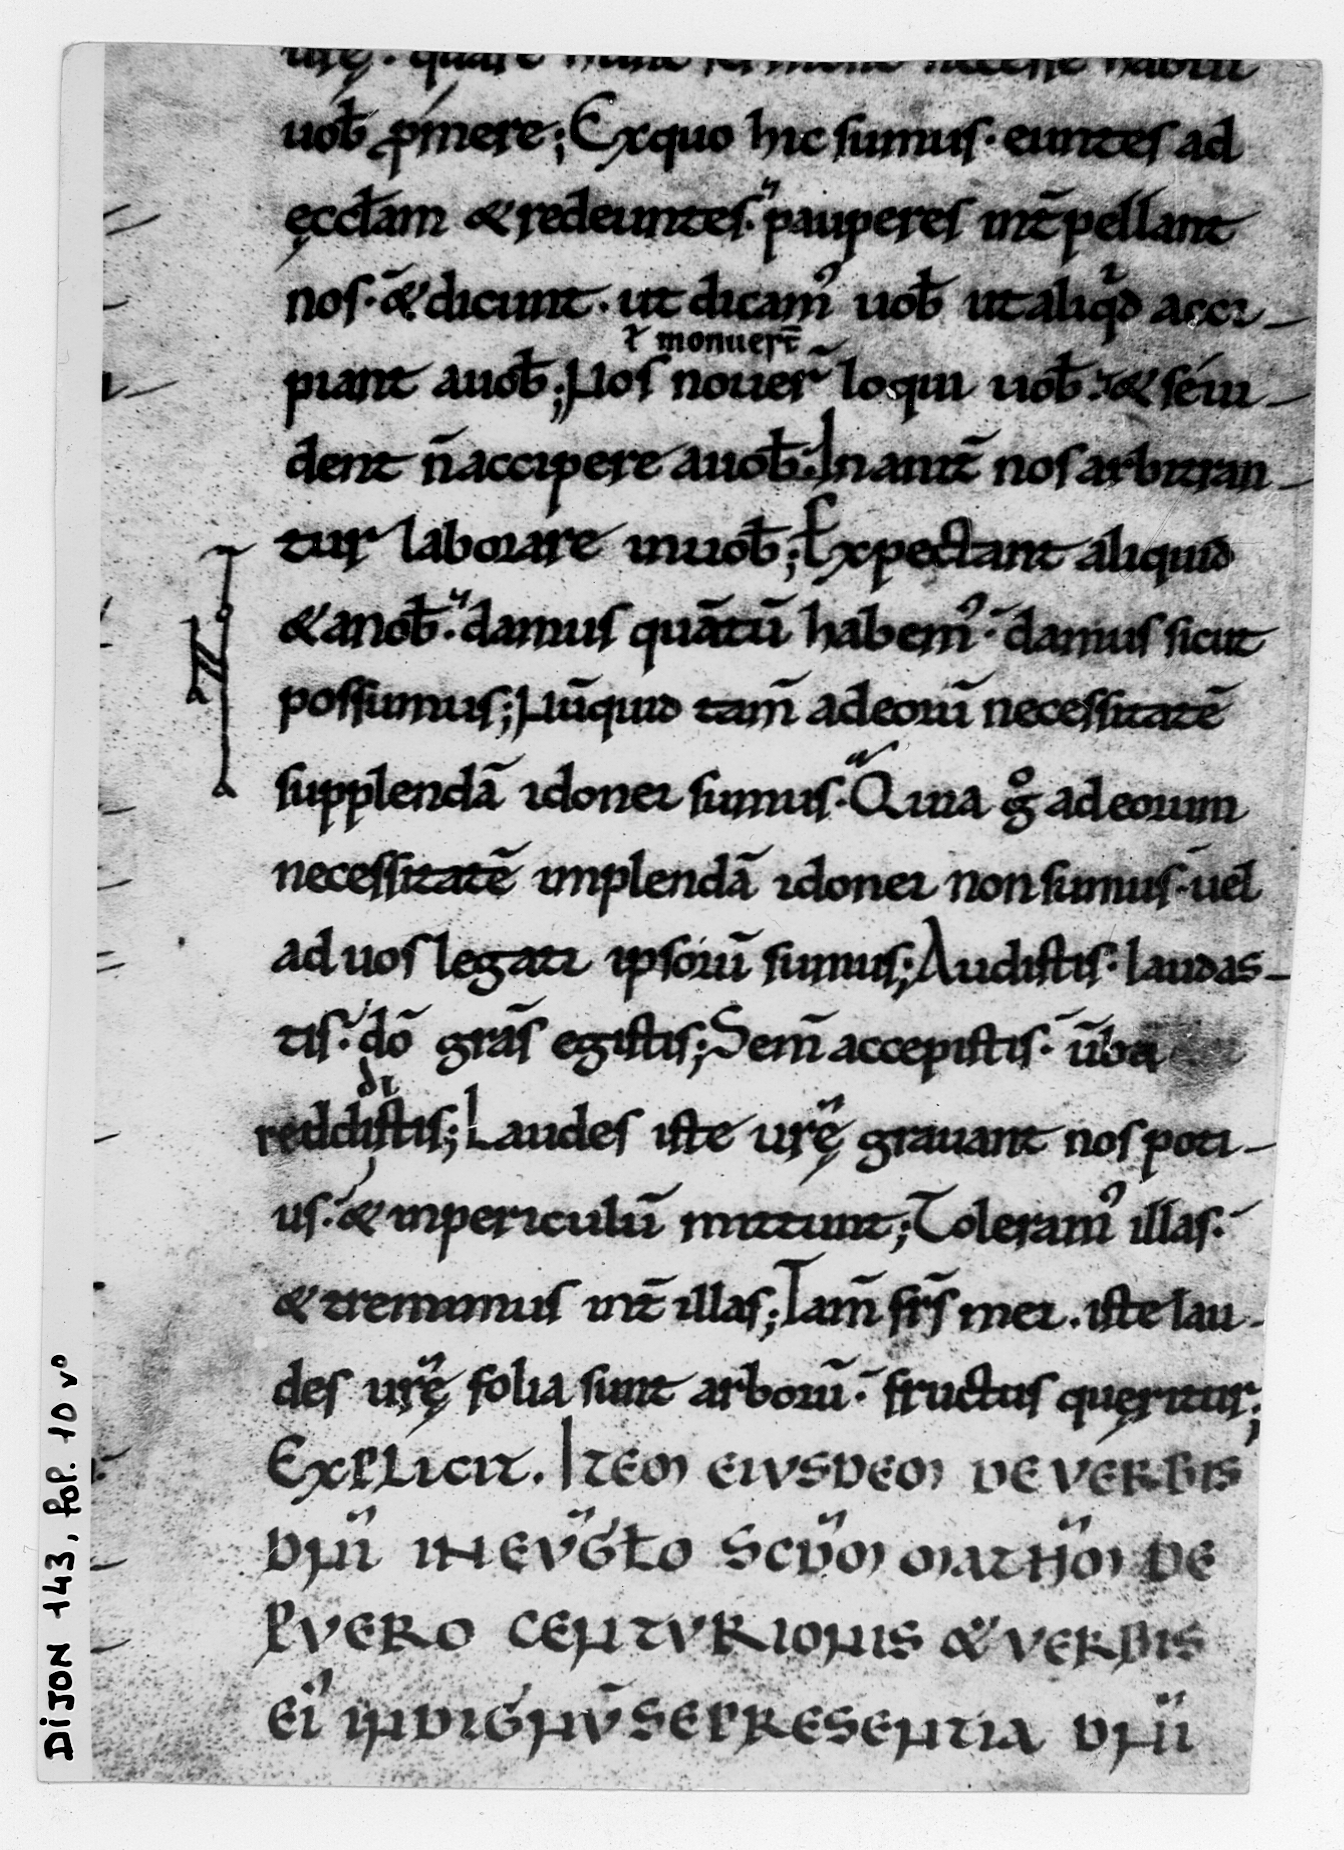 urę. quare hunc sermone necesse habui
uob̄ p͛mere; Ex quo hic sumus. euntes ad
ęccl̄am & redeuntes. pauperes int̄pellant
nos. & dicunt. ut dicam᾽ uob̄ ut aliq͛d acci-
ł monuer̄t
piant a uob̄; Nos nouer̄ loqui uob̄. & se ui-
dent n̄ accipere a uob̄. Inanit̄ nos arbitran-
tur laborare in uob̄; Expectant aliquid
& a nob̄. damus quātū habem᾽. damus sicut
possumus; Nūquid tam̄ ad eorū necessitatē
supplendā idonei sumus. Quia g° ad eorum
necessitatē implendā idonei non sumus. uel
ad uos legati ipsorū sumus; Audistis. laudas-
tis. dō grās egistis; Sem̄ accepistis. ūba
di
reddistis; Laudes iste urę̄ grauant nos poti-
us. & in periculū mittunt; Toleram᾽ illas.
& tremimus int̄ illas; Tam̄ fr̄s mei. iste lau-
des urę̄ folia sunt arborū. fructus quęritur;
EXPLICIT. ITEM EIUSDEM DE VERBIS
DN̄I IN EV̄GŁO SCD̄M MATH̄M DE
PVERO CENTVRIONIS & VERBIS
EI᾽ INDIGNV̄ SE PRESENTIA DN̄I
N
DIJON 143, fol. 10 v°